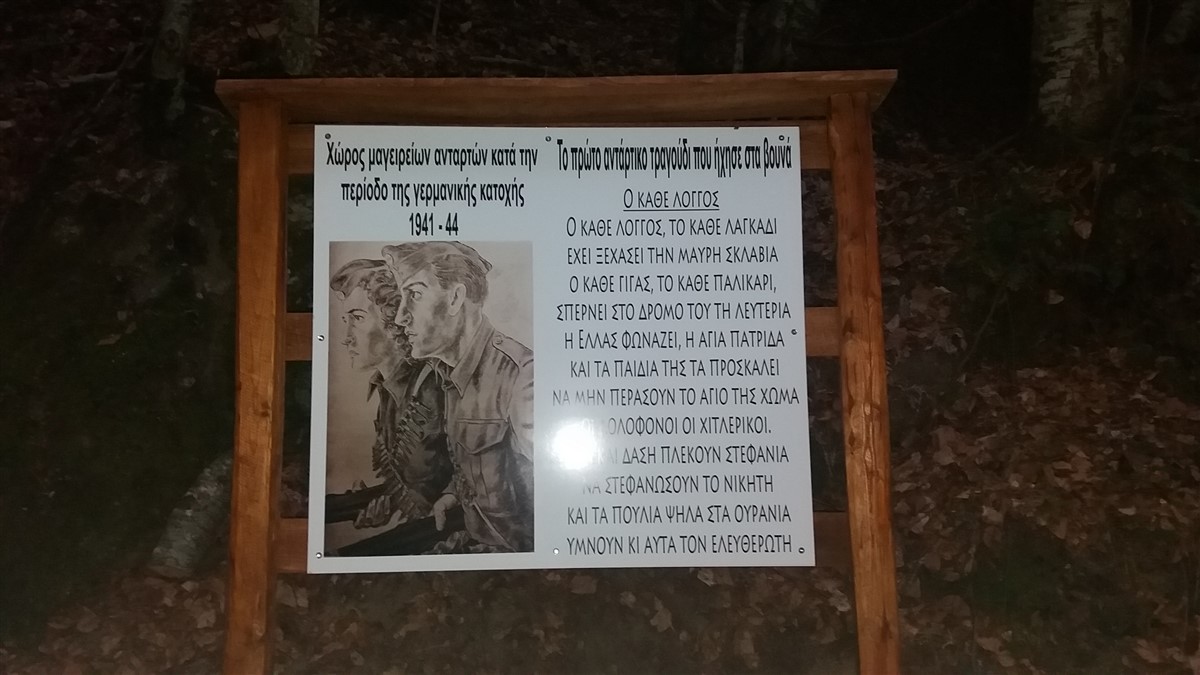 Χώρος μαγειρείων ανταρτών κατά την
περίοδο της γερμανικής κατοχής
1941 - 44
Το πρώτο αντάρτικο τραγούδι που ήχησε στα βουνά
Ο ΚΑΘΕ ΛΟΓΓΟΣ
Ο ΚΑΘΕ ΛΟΓΓΟΣ, ΤΟ ΚΑΘΕ ΛΑΓΚΑΔΙ
ΕΧΕΙ ΞΕΧΑΣΕΙ ΤΗΝ ΜΑΥΡΗ ΣΚΛΑΒΙΑ
Ο ΚΑΘΕ ΓΙΓΑΣ, ΤΟ ΚΑΘΕ ΠΑΛΙΚΑΡΙ,
ΣΠΕΡΝΕΙ ΣΤΟ ΔΡΟΜΟ ΤΟΥ ΤΗ ΛΕΥΤΕΡΙΑ
Η ΕΛΛΑΣ ΦΩΝΑΖΕΙ, Η ΑΓΙΑ ΠΑΤΡΙΔΑ
ΚΑΙ ΤΑ ΠΑΙΔΙΑ ΤΗΣ ΤΑ ΠΡΟΣΚΑΛΕΙ
ΝΑ ΜΗΝ ΠΕΡΑΣΟΥΝ ΤΟ ΑΓΙΟ ΤΗΣ ΧΩΜΑ
ΟΙ ΧΙΤΛΕΡΙΚΟΙ.
ΔΑΣΗ ΠΛΕΚΟΥΝ ΣΤΕΦΑΝΙΑ
ΝΑ ΣΤΕΦΑΝΩΣΟΥΝ ΤΟ ΝΙΚΗΤΗ
ΚΑΙ ΤΑ ΠΟΥΛΙΑ ΨΗΛΑ ΣΤΑ ΟΥΡΑΝΙΑ
ΥΜΝΟΥΝ ΚΙ ΑΥΤΑ ΤΟΝ ΕΛΕΥΘΕΡΩΤΗ